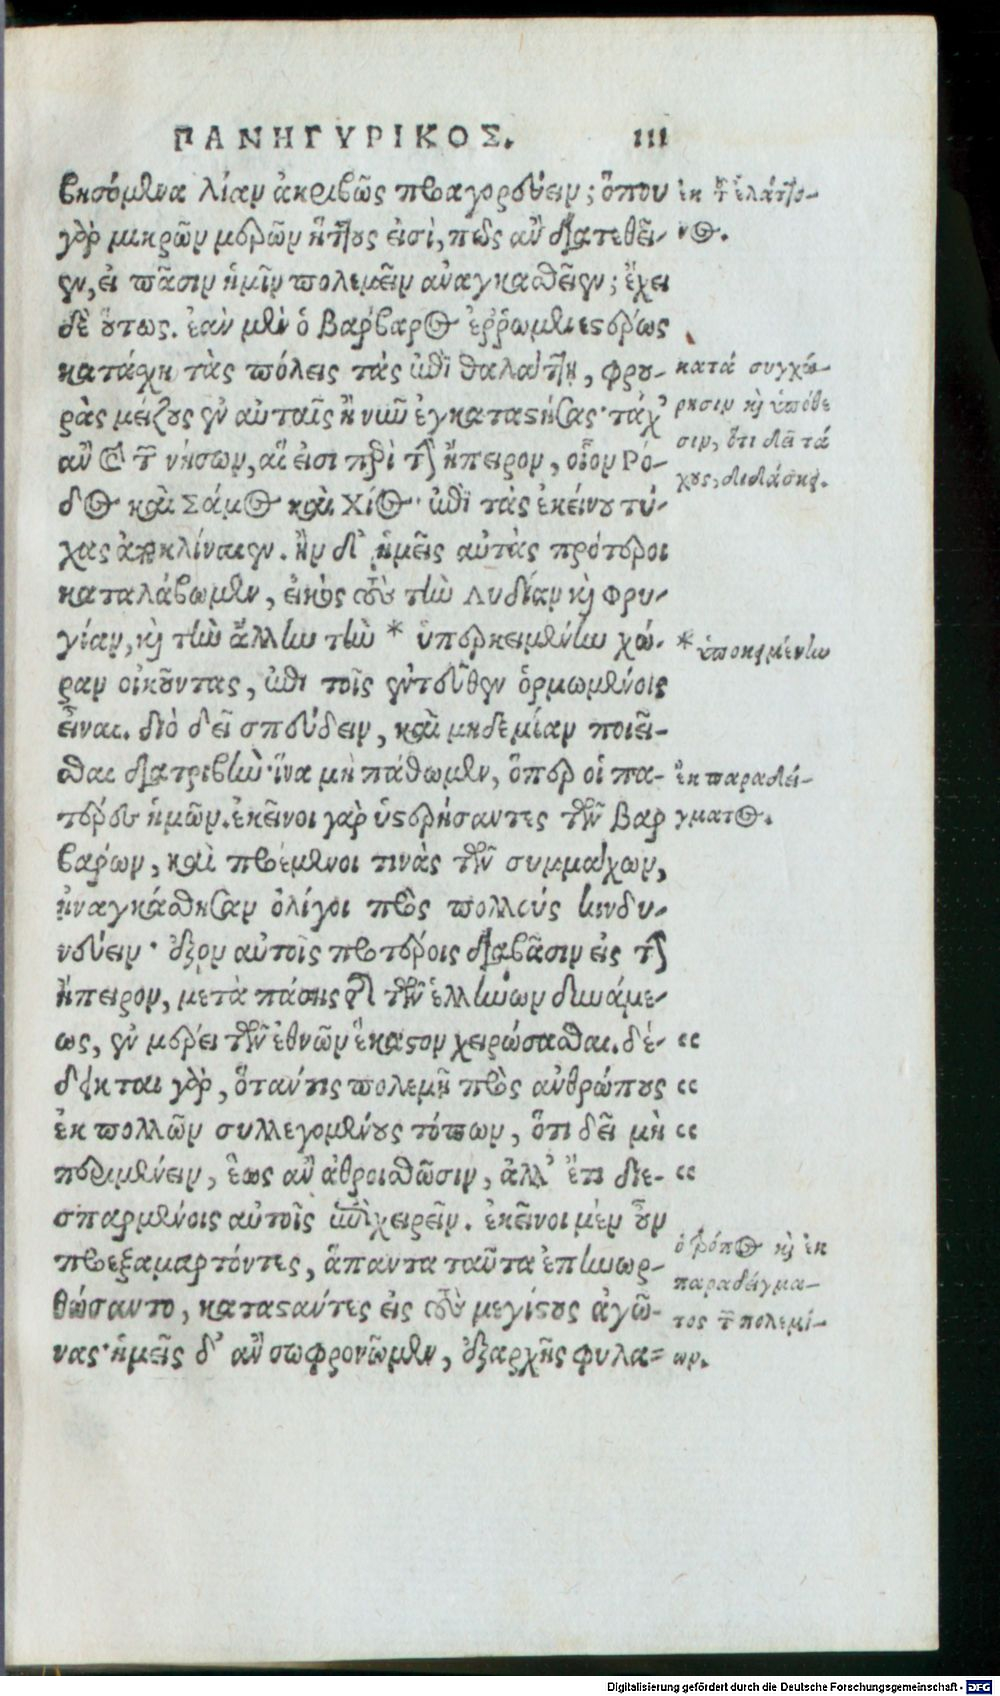 ΠΑΝΗΓΥΡΙΚΟΣ. 111
βησόμενα λίαν ἀκριβῶς προαγορεύειν; ὅπου
γὰρ μικρῶν μερῶν ἥττους εἰσὶ, πῶς ἂν διατεθεῖ-
εν, εἰ πᾶσιν ἡμῖν πολεμεῖν ἀναγκασθεῖεν; ἔχει
δὲ οὕτως. ἐὰν μὲν ὁ Βάρβαρος ἐῤῥωμενεστέρως
κατάσχῃ τὰς πόλεις τὰς ἐπὶ θαλάττῃ, φρου-
ρὰς μείζους ἐν αὐταῖς ἢ νῦν ἐγκαταστήσας· τάχ᾽
ἂν καὶ τῶν νήσων, αἵ εἰσι περὶ τὴν ἤπειρον, οἷον Ῥό-
δος καὶ Σάμος καὶ Χίος· ἐπὶ τὰς ἐκείνου τύ-
χας ἀποκλίναιεν. ἢν δ᾽ ἡμεῖς αὐτὰς πρότεροι
καταλάβωμεν, εἰκὸς τοὺς τὴν Λυδίαν καὶ Φρυ-
γίαν, καὶ τὴν ἄλλην τὴν * ὑπερκειμένην χώ-
ραν οἰκοῦντας, ἐπὶ τοῖς ἐντεῦθεν ὁρμωμένοις
εἶναι. διὸ δεῖ σπεύδειν, καὶ μηδεμίαν ποιεῖ-
σθαι διατριβὴν· ἵνα μὴ πάθωμεν, ὅπερ οἱ πα-
τέρες ἡμῶν. ἐκεῖνοι γὰρ ὑστερήσαντες τῶν Βαρ
βάρων, καὶ προέμενοι τινὰς τῶν συμμάχων,
ἠναγκάσθησαν ὀλίγοι πρὸς πολλοὺς κινδυ-
νεύειν· ἐξὸν αὐτοῖς προτέροις διαβᾶσιν εἰς τὴν
ἤπειρον, μετὰ πάσης τῆς τῶν ἑλλήνων δυνάμε-
ως, ἐν μέρει τῶν ἐθνῶν ἕκαστον χειρώσασθαι. δέ-
δεικται γὰρ, ὅταν τις πολεμῇ πρὸς ἀνθρώπους
ἐκ πολλῶν συλλεγομένους τόπων, ὅτι δεῖ μὴ
περιμένειν, ἕως ἂν ἀθροισθῶσιν, ἀλλ᾽ ἔτι διε-
σπαρμένοις αὐτοῖς ἐπιχειρεῖν. ἐκεῖνοι μὲν οὖν
προεξαμαρτόντες, ἅπαντα ταῦτα ἐπηνωρ-
θώσαντο, καταστάντες εἰς τοὺς μεγίστους ἀγῶ-
νας· ἡμεῖς δ᾽ ἂν σωφρονῶμεν, ἐξαρχῆς φυλα=
ἐκ τοῦ ἐλάττο-
νος.
κατά συγχώ-
ρησιν καὶ ὑπόθε
σιν, ὅτι δεῖ τά
χους, διδάσκει.
* ὑποκειμένην
ἐκ παραδεί-
γματος.
ὁ τρόπος καὶ ἐκ
παραδείγμα-
τος τῶν πολεμί-
ων.
Digitalisierung gefördert durch die Deutsche Forschungsgemeinschaft - DFG